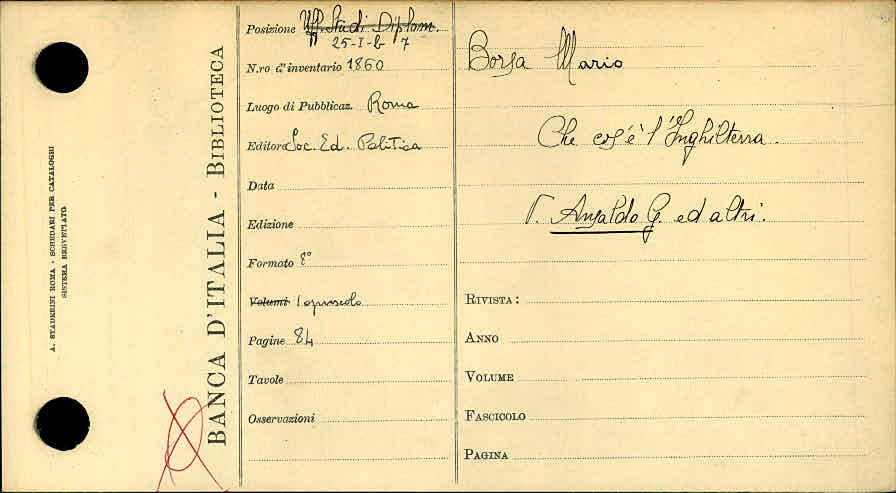 A. STADERINI ROMA - SCHEDARI PER CATALOGHI
SISTEMA BREVETTATO
BANCA D'ITALIA - BIBLIOTECA
Posizione Uff. Studi Diplom.
25-I-b 7
N.ro d'inventario 1860
Luogo di Pubblicaz. Roma
Editore Soc. Ed. Politica
Data
Edizione
Formato 8°
Volumi 1 opuscolo
Pagine 84
Tavole
Osservazioni
Borsa Mario
Che cos'è l'Inghilterra.
V. Ansaldo G. ed altri.
RIVISTA:
ANNO
VOLUME
FASCICOLO
PAGINA